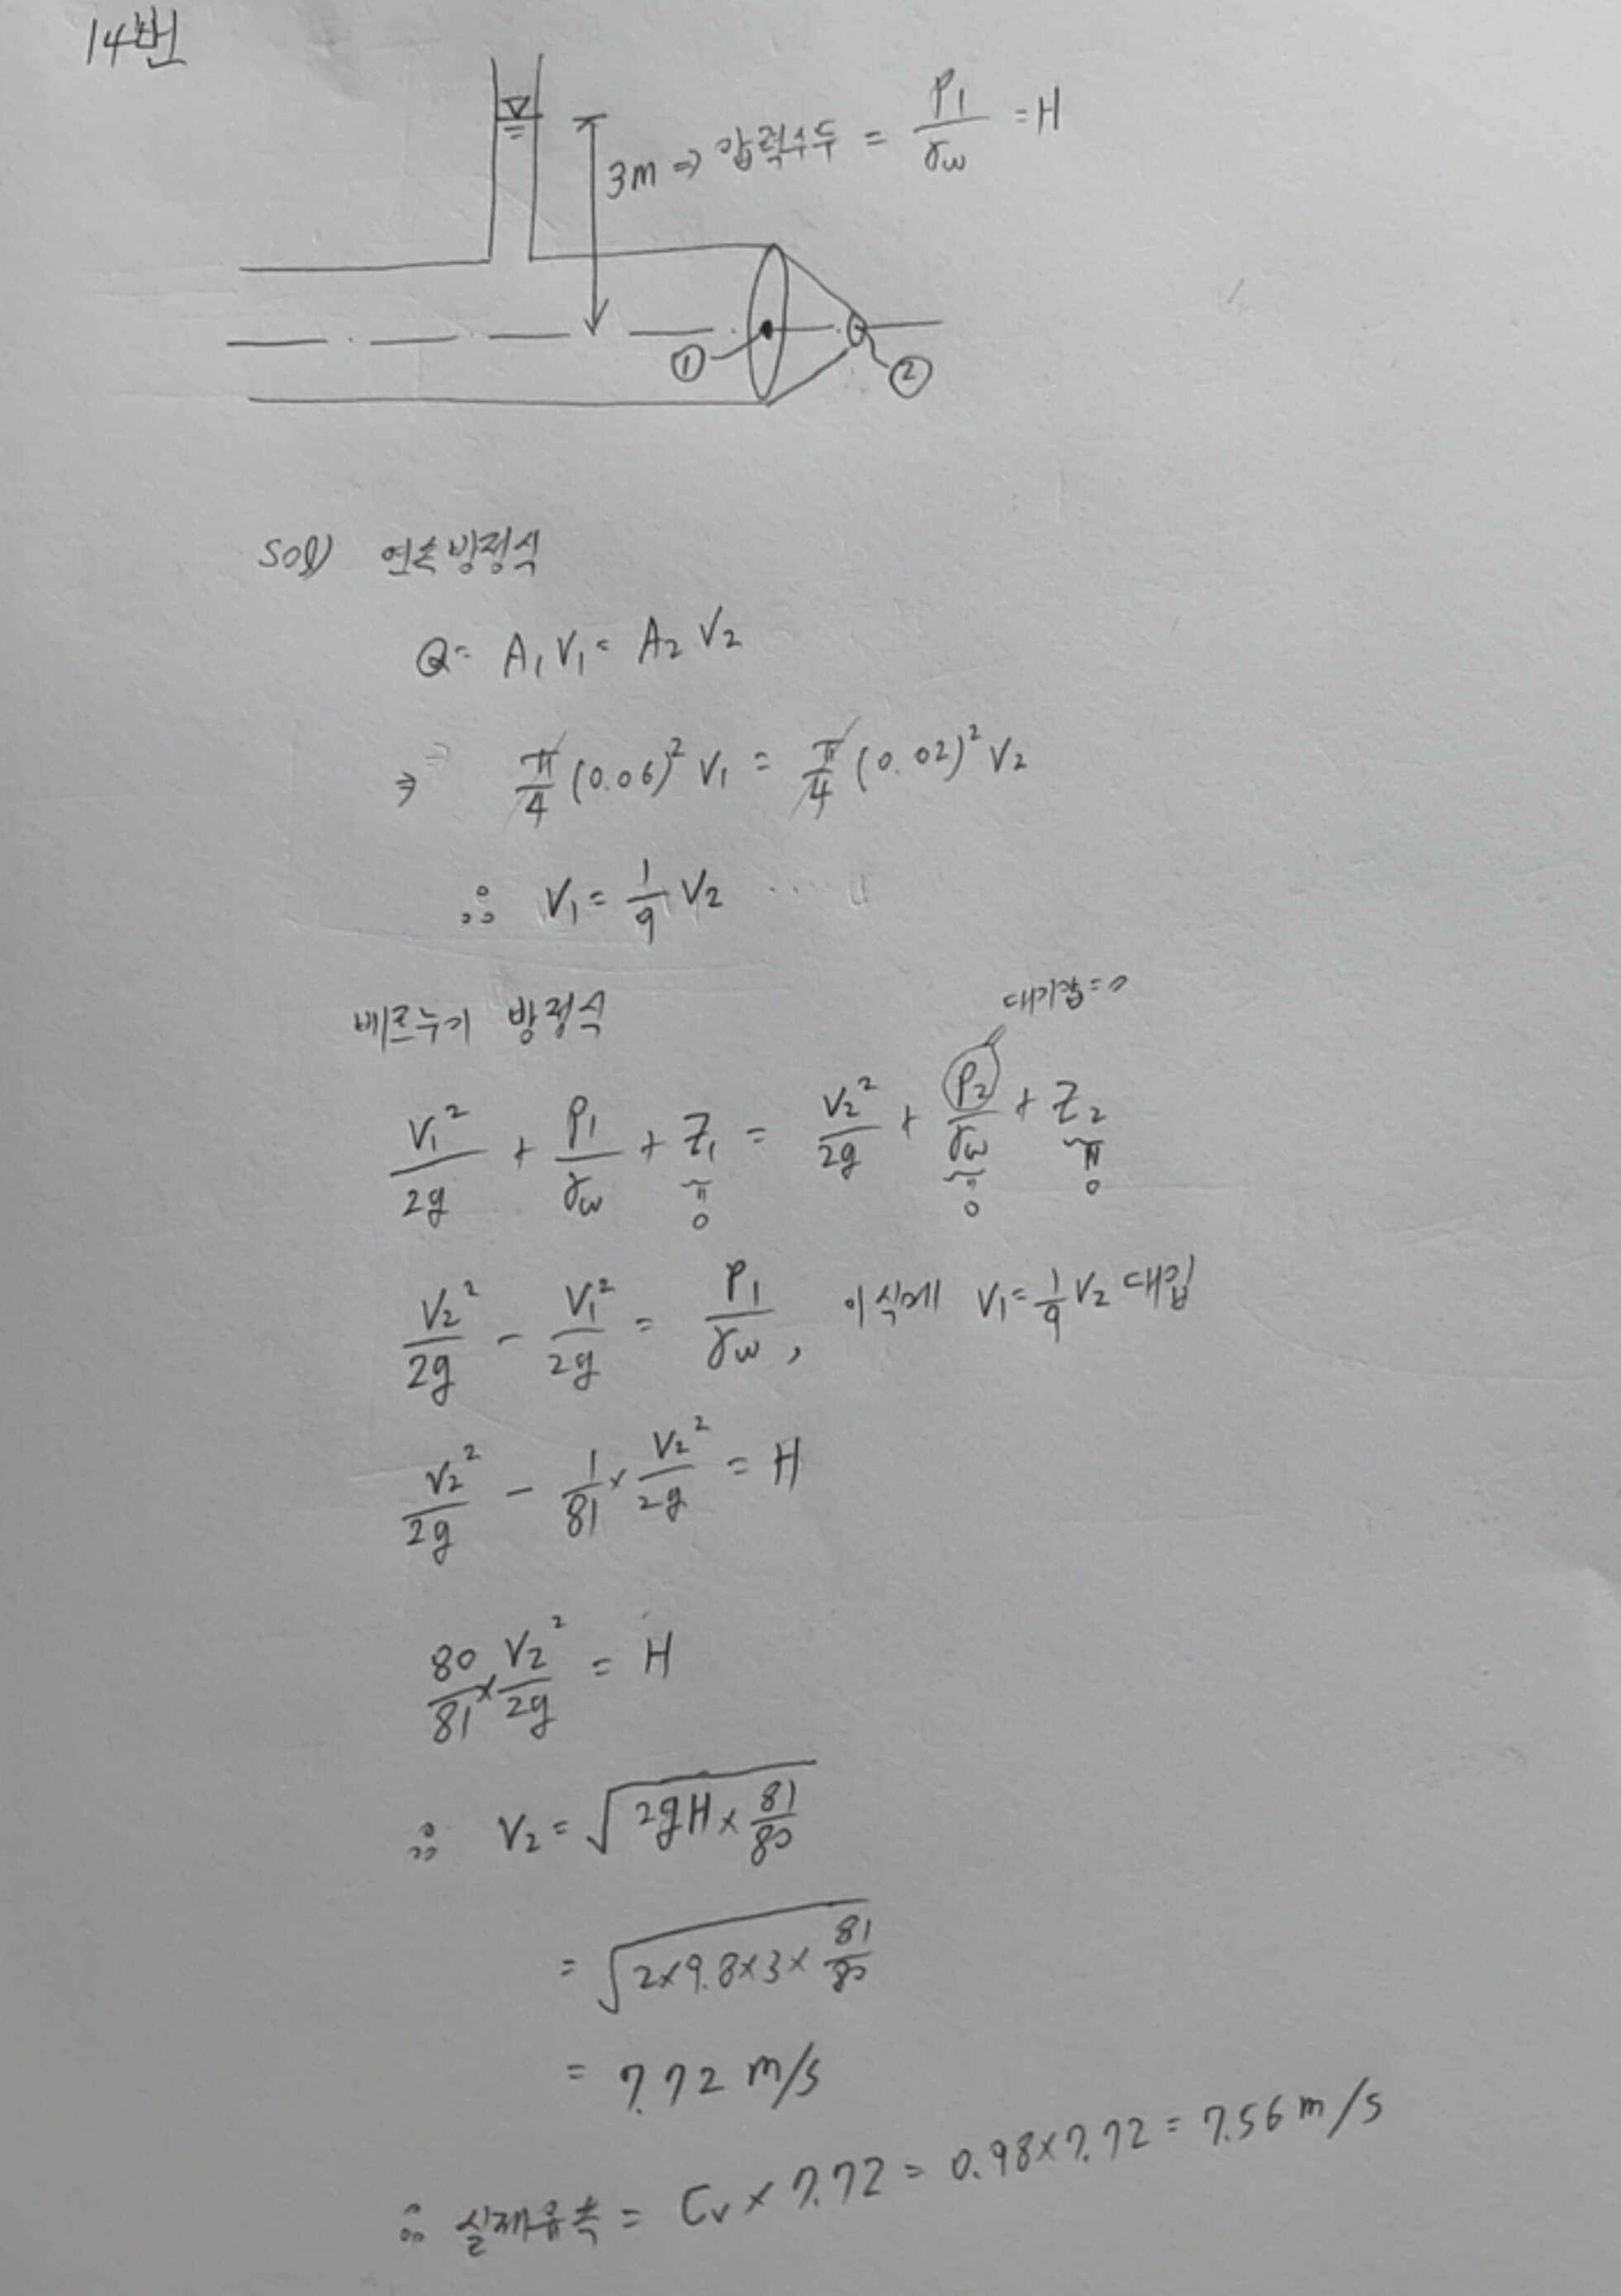 14번
3m ⇒ 압력수두 = P₁/γw = H
① ②
sol) 연속방정식
Q = A₁V₁ = A₂V₂
⇒ π/4 (0.06)² V₁ = π/4 (0.02)² V₂
∴ V₁ = 1/9 V₂ ····
베르누이 방정식
대기압=0
V₁²/2g + P₁/γw + Z₁ = V₂²/2g + P₂/γw + Z₂
0 0 0
V₂²/2g - V₁²/2g = P₁/γw , 이식에 V₁ = 1/9 V₂ 대입
V₂²/2g - 1/81 × V₂²/2g = H
80/81 × V₂²/2g = H
∴ V₂ = √(2gH × 81/80)
= √(2×9.8×3× 81/80)
= 7.72 m/s
∴ 실제유속 = Cv × 7.72 = 0.98×7.72 = 7.56 m/s